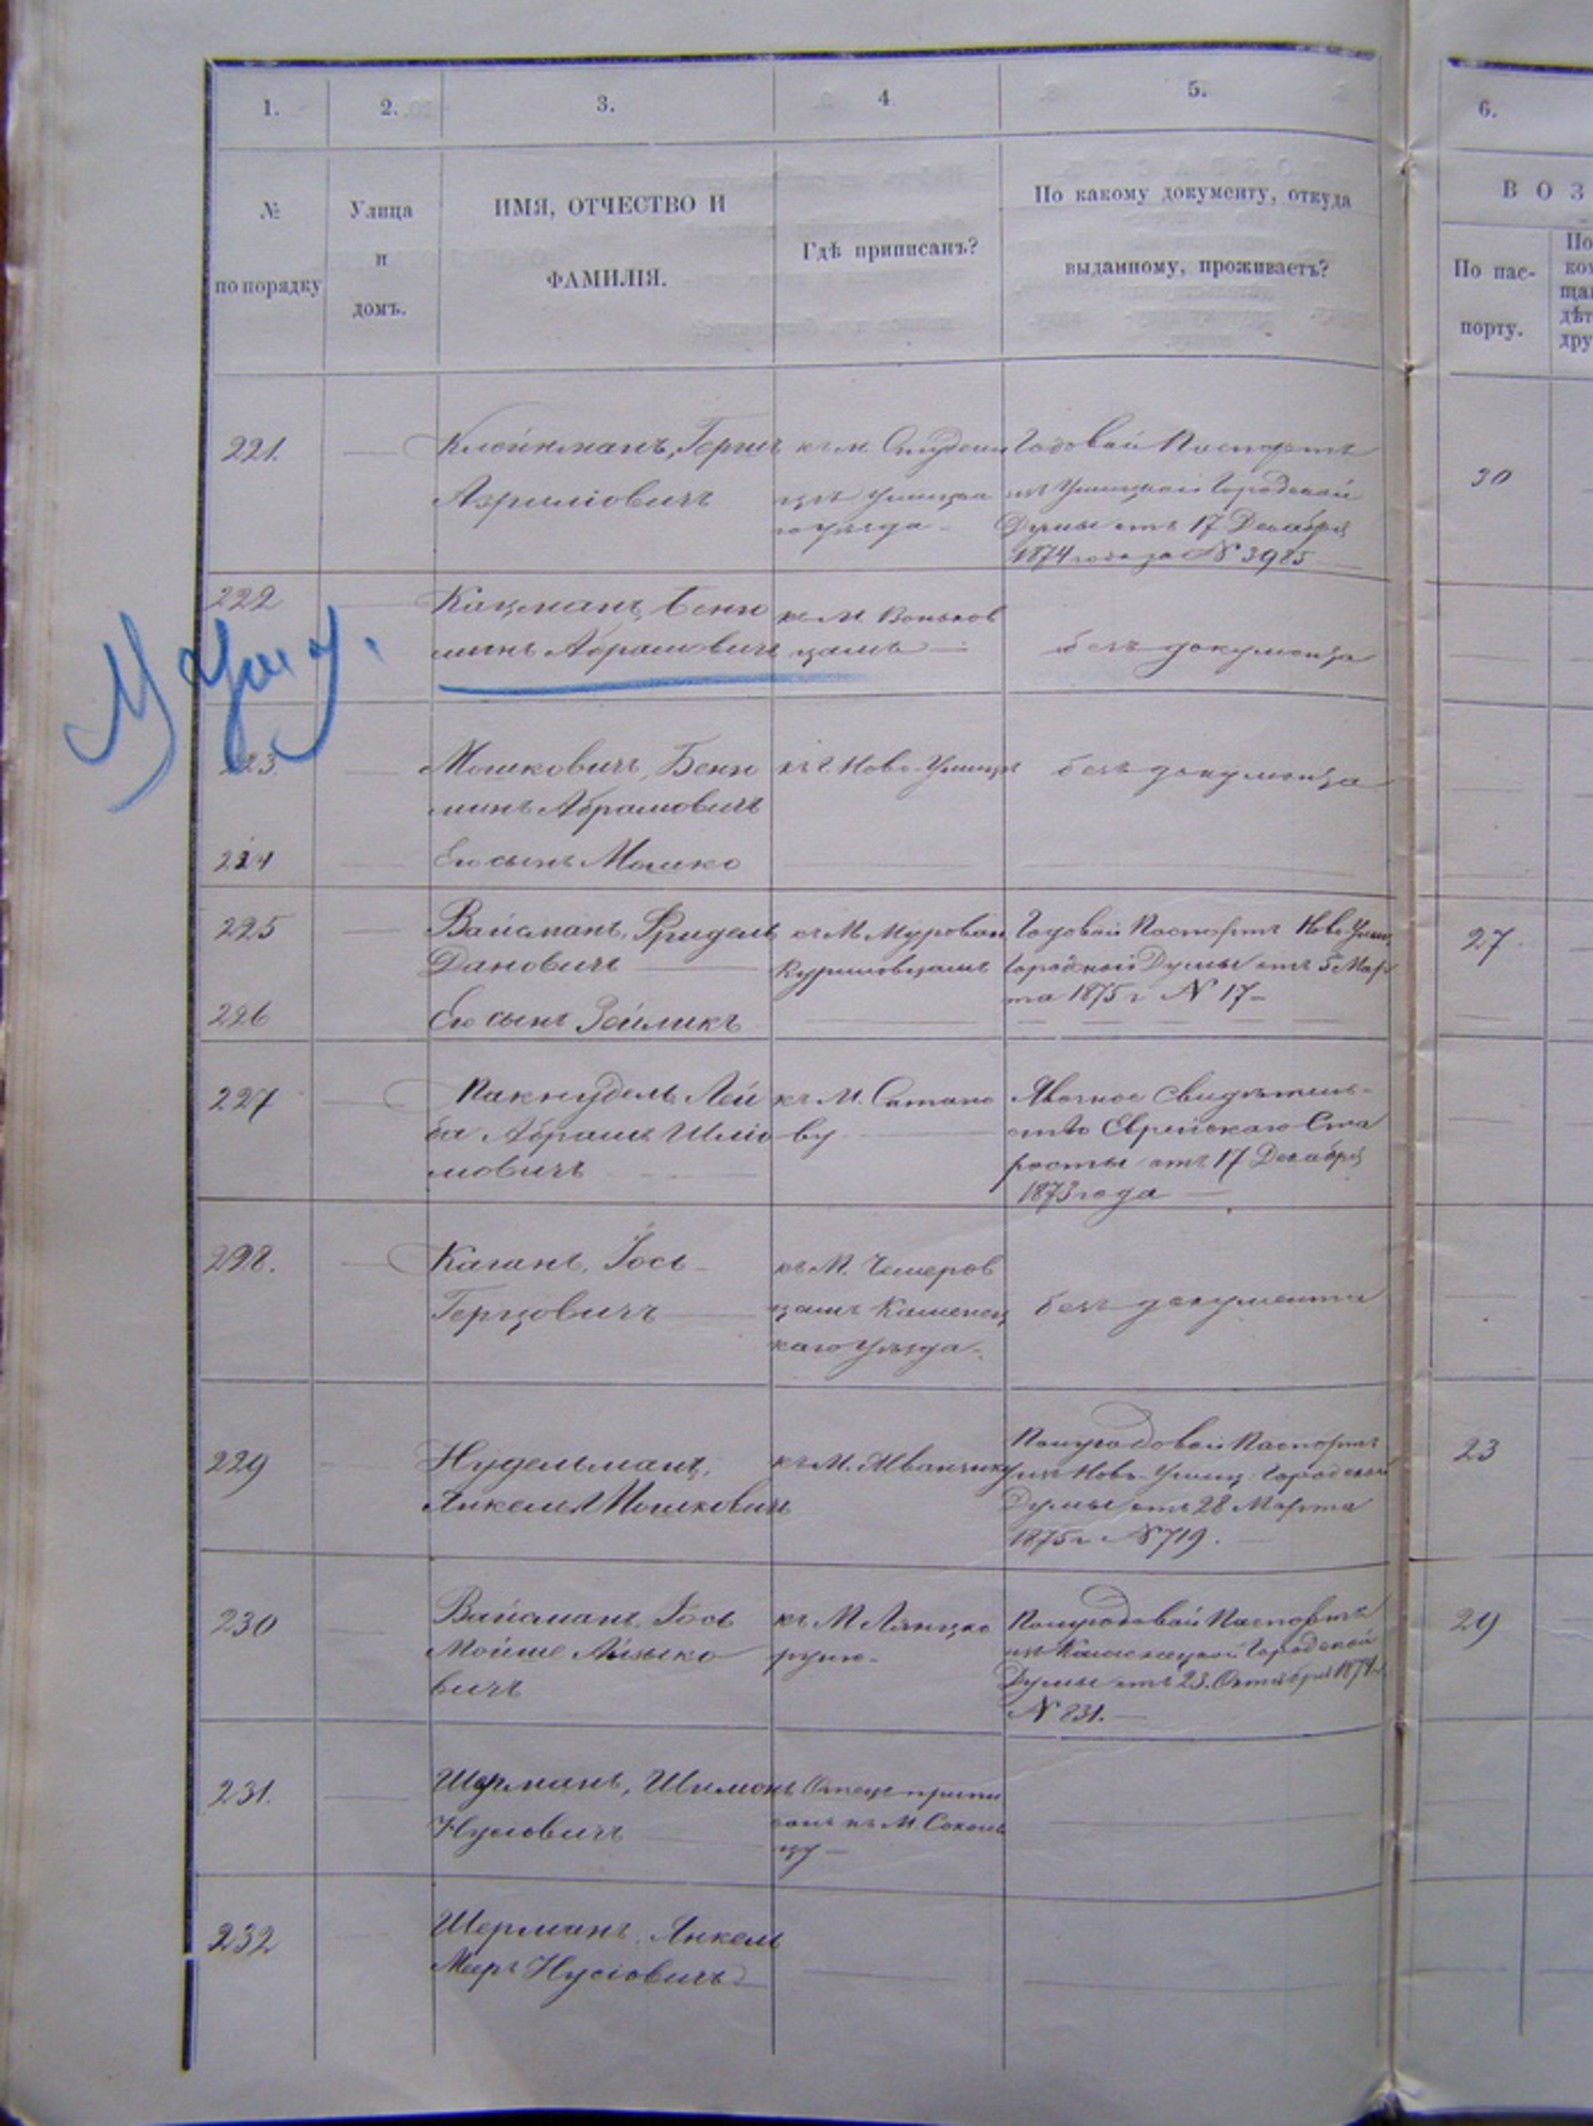 1. 2. 3. 4. 5. 6.
№
по порядку
Улица
и
домъ.
ИМЯ, ОТЧЕСТВО И
ФАМИЛІЯ.
Гдѣ приписанъ?
По какому документу, откуда
выданному, проживаетъ?
ВОЗ
По пас-
порту.
По
ком
щан
дѣт
дру
221.
Клейнманъ, Герш
Аврумовичъ
къ м. Студени
цѣ Ушицка
го уѣзда
Годовой Паспортъ
изъ Ушицкой Городской
Думы отъ 17 Декабря
1874 года за № 3985
30
222
Кацманъ, Бень
минъ Абрамовичъ
къ М. Воньков
цамъ
безъ документа
223.
Мошковичъ, Бень
минъ Абрамовичъ
къ г. Ново-Ушицѣ
безъ документа
224
Его сынъ Мошко
225
Вайсманъ, Фридель
Дановичъ
къ М. Мурован
Куриловцамъ
Годовой Паспортъ Ново-Ушиц
Городской Думы отъ 5 Мар
та 1875 г № 17
27
226
Его сынъ Зейликъ
227
Пакнудель Лей
ба Абрамъ Шлио
мовичъ
къ М. Сатано
ву
Явочное свидѣтель-
ство Еврейскаго Ста
росты отъ 17 Декабря
1873 года
228.
Каганъ, Іось
Герцовичъ
къ М. Чемеров
цамъ Каменец
каго уѣзда
безъ документа
229
Нудельманъ,
Янкель Мошковичъ
къ М. Жванчику
Полугодовой Паспортъ
изъ Ново-Ушиц. Городской
Думы отъ 28 Марта
1875 г № 719.
23
230
Вайсманъ, Іось
Мойше Айзыко
вичъ
къ М Лянцко
руню
Полугодовой Паспортъ
изъ Каменецкой Городской
Думы отъ 23. Октября 1874
№ 831.
29
231.
Шерманъ, Шимонъ
Нусовичъ
Отецъ припи
санъ къ М. Соколь
цу
232
Шерманъ, Янкель
Меръ Нусіовичъ